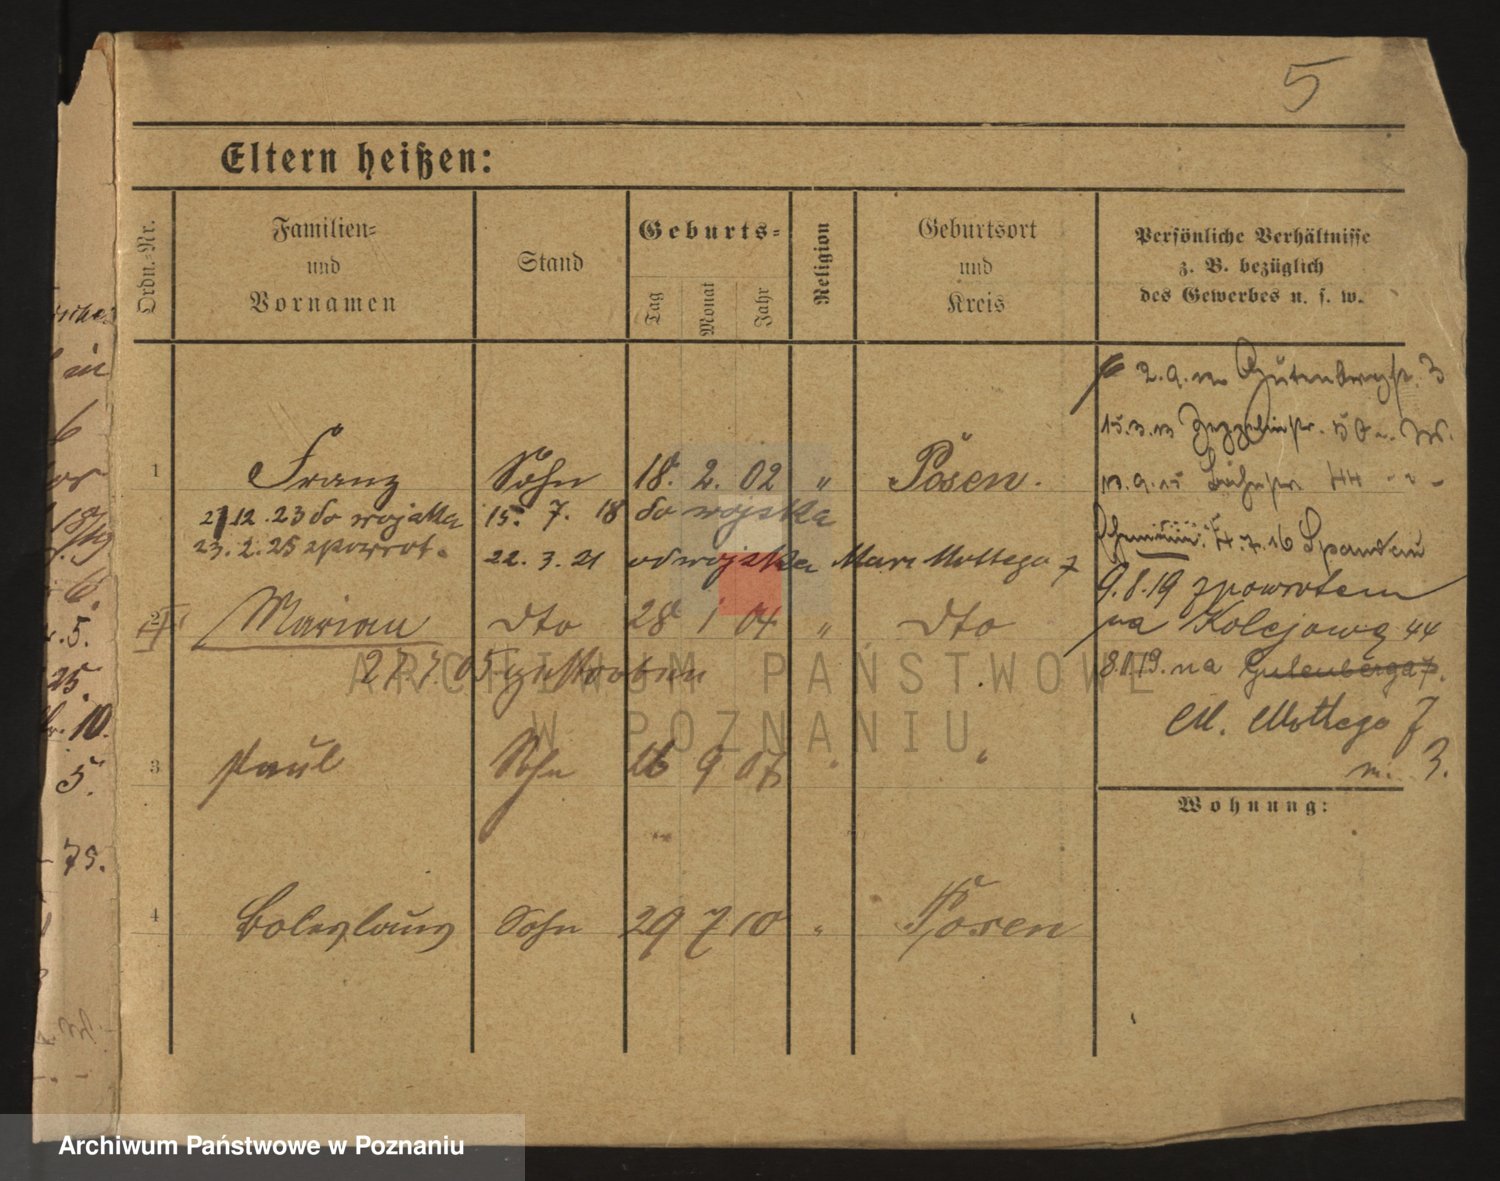 5
Eltern heißen:
Ordn.-Nr.
Familien-
und
Vornamen
Stand
Geburts-
Tag
Monat
Jahr
Religion
Geburtsort
und
Kreis
Persönliche Verhältnisse
z. B. bezüglich
des Gewerbes u. s. w.
2.9. Gutenbergstr. 3
15.3.13 Zeppelinstr.
1 Franz Sohn 18. 2. 02 " Posen.
44
27 12. 23 do wojska 15. 7. 18 do wojska
4.7.16 Spandau
23. 2. 25 zpowrot. 22. 3. 21 od wojska Mar. Mottego 7
9.8.19 zpowrotem
2 Marian dto 28 1 04 " dto
na Kolejową 44
27 7 05 gestorben
8.1.19. na Gutenberga 7.
M. Mottego 7
m. 3.
3 Paul Sohn 26 9 07 " "
Wohnung:
4 Boleslaus Sohn 29 7 10 " Posen
in
6
5.
25.
10.
5.
75.
ARCHIWUM PAŃSTWOWE
W POZNANIU
Archiwum Państwowe w Poznaniu